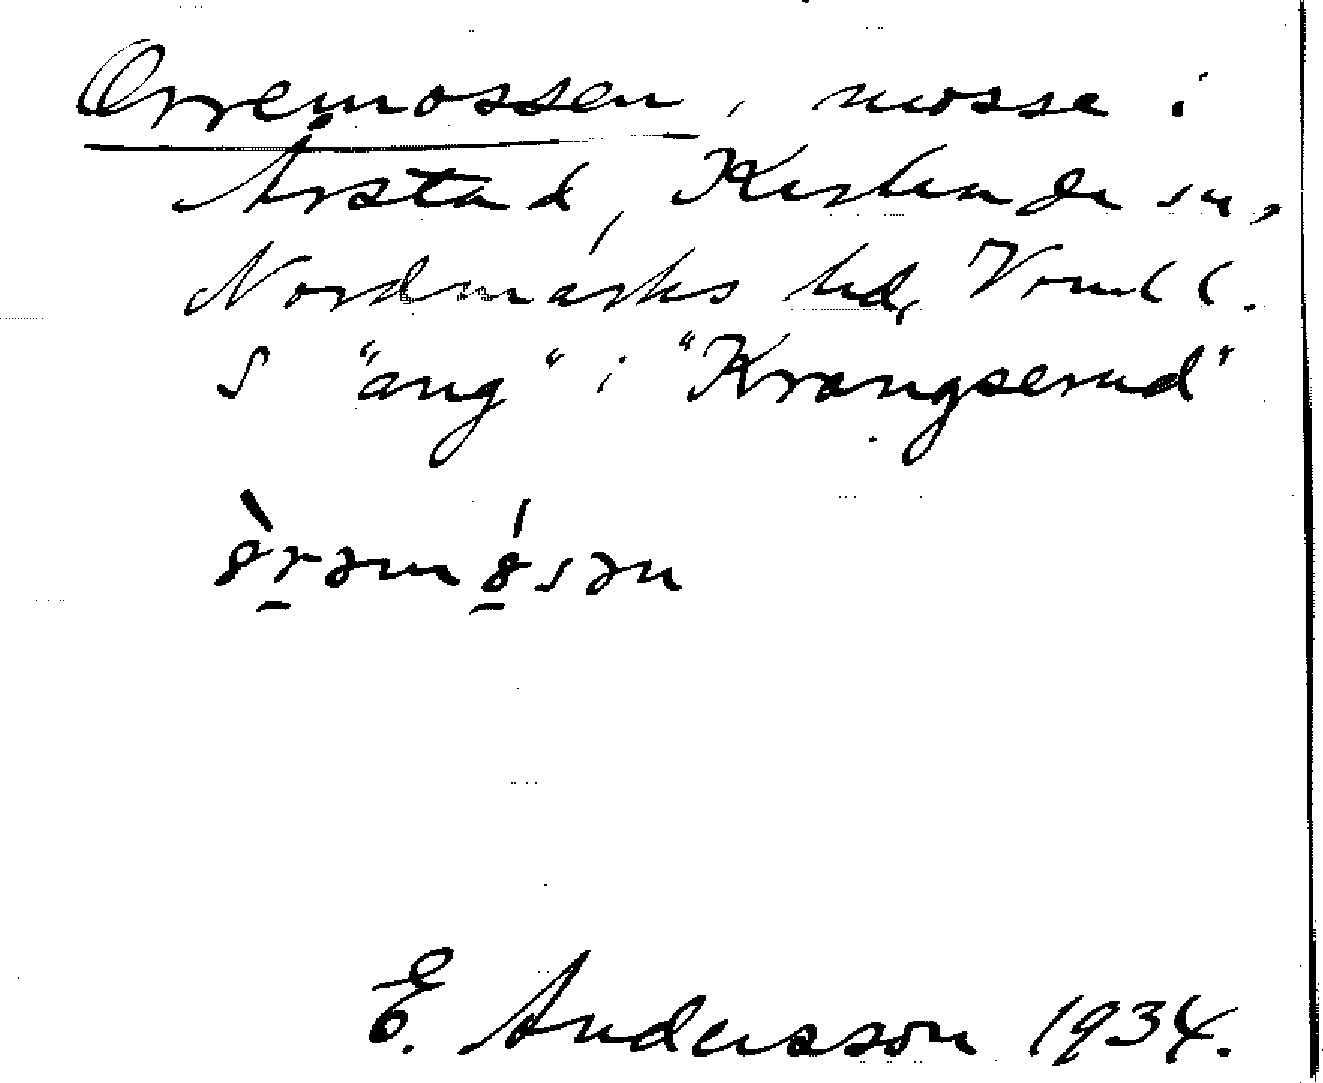 Orremossen, mosse i
Årstad, Karlanda sn,
Nordmarks hd, Vrml l.
S "ang" i "Krangserud"
E. Andersson 1934.